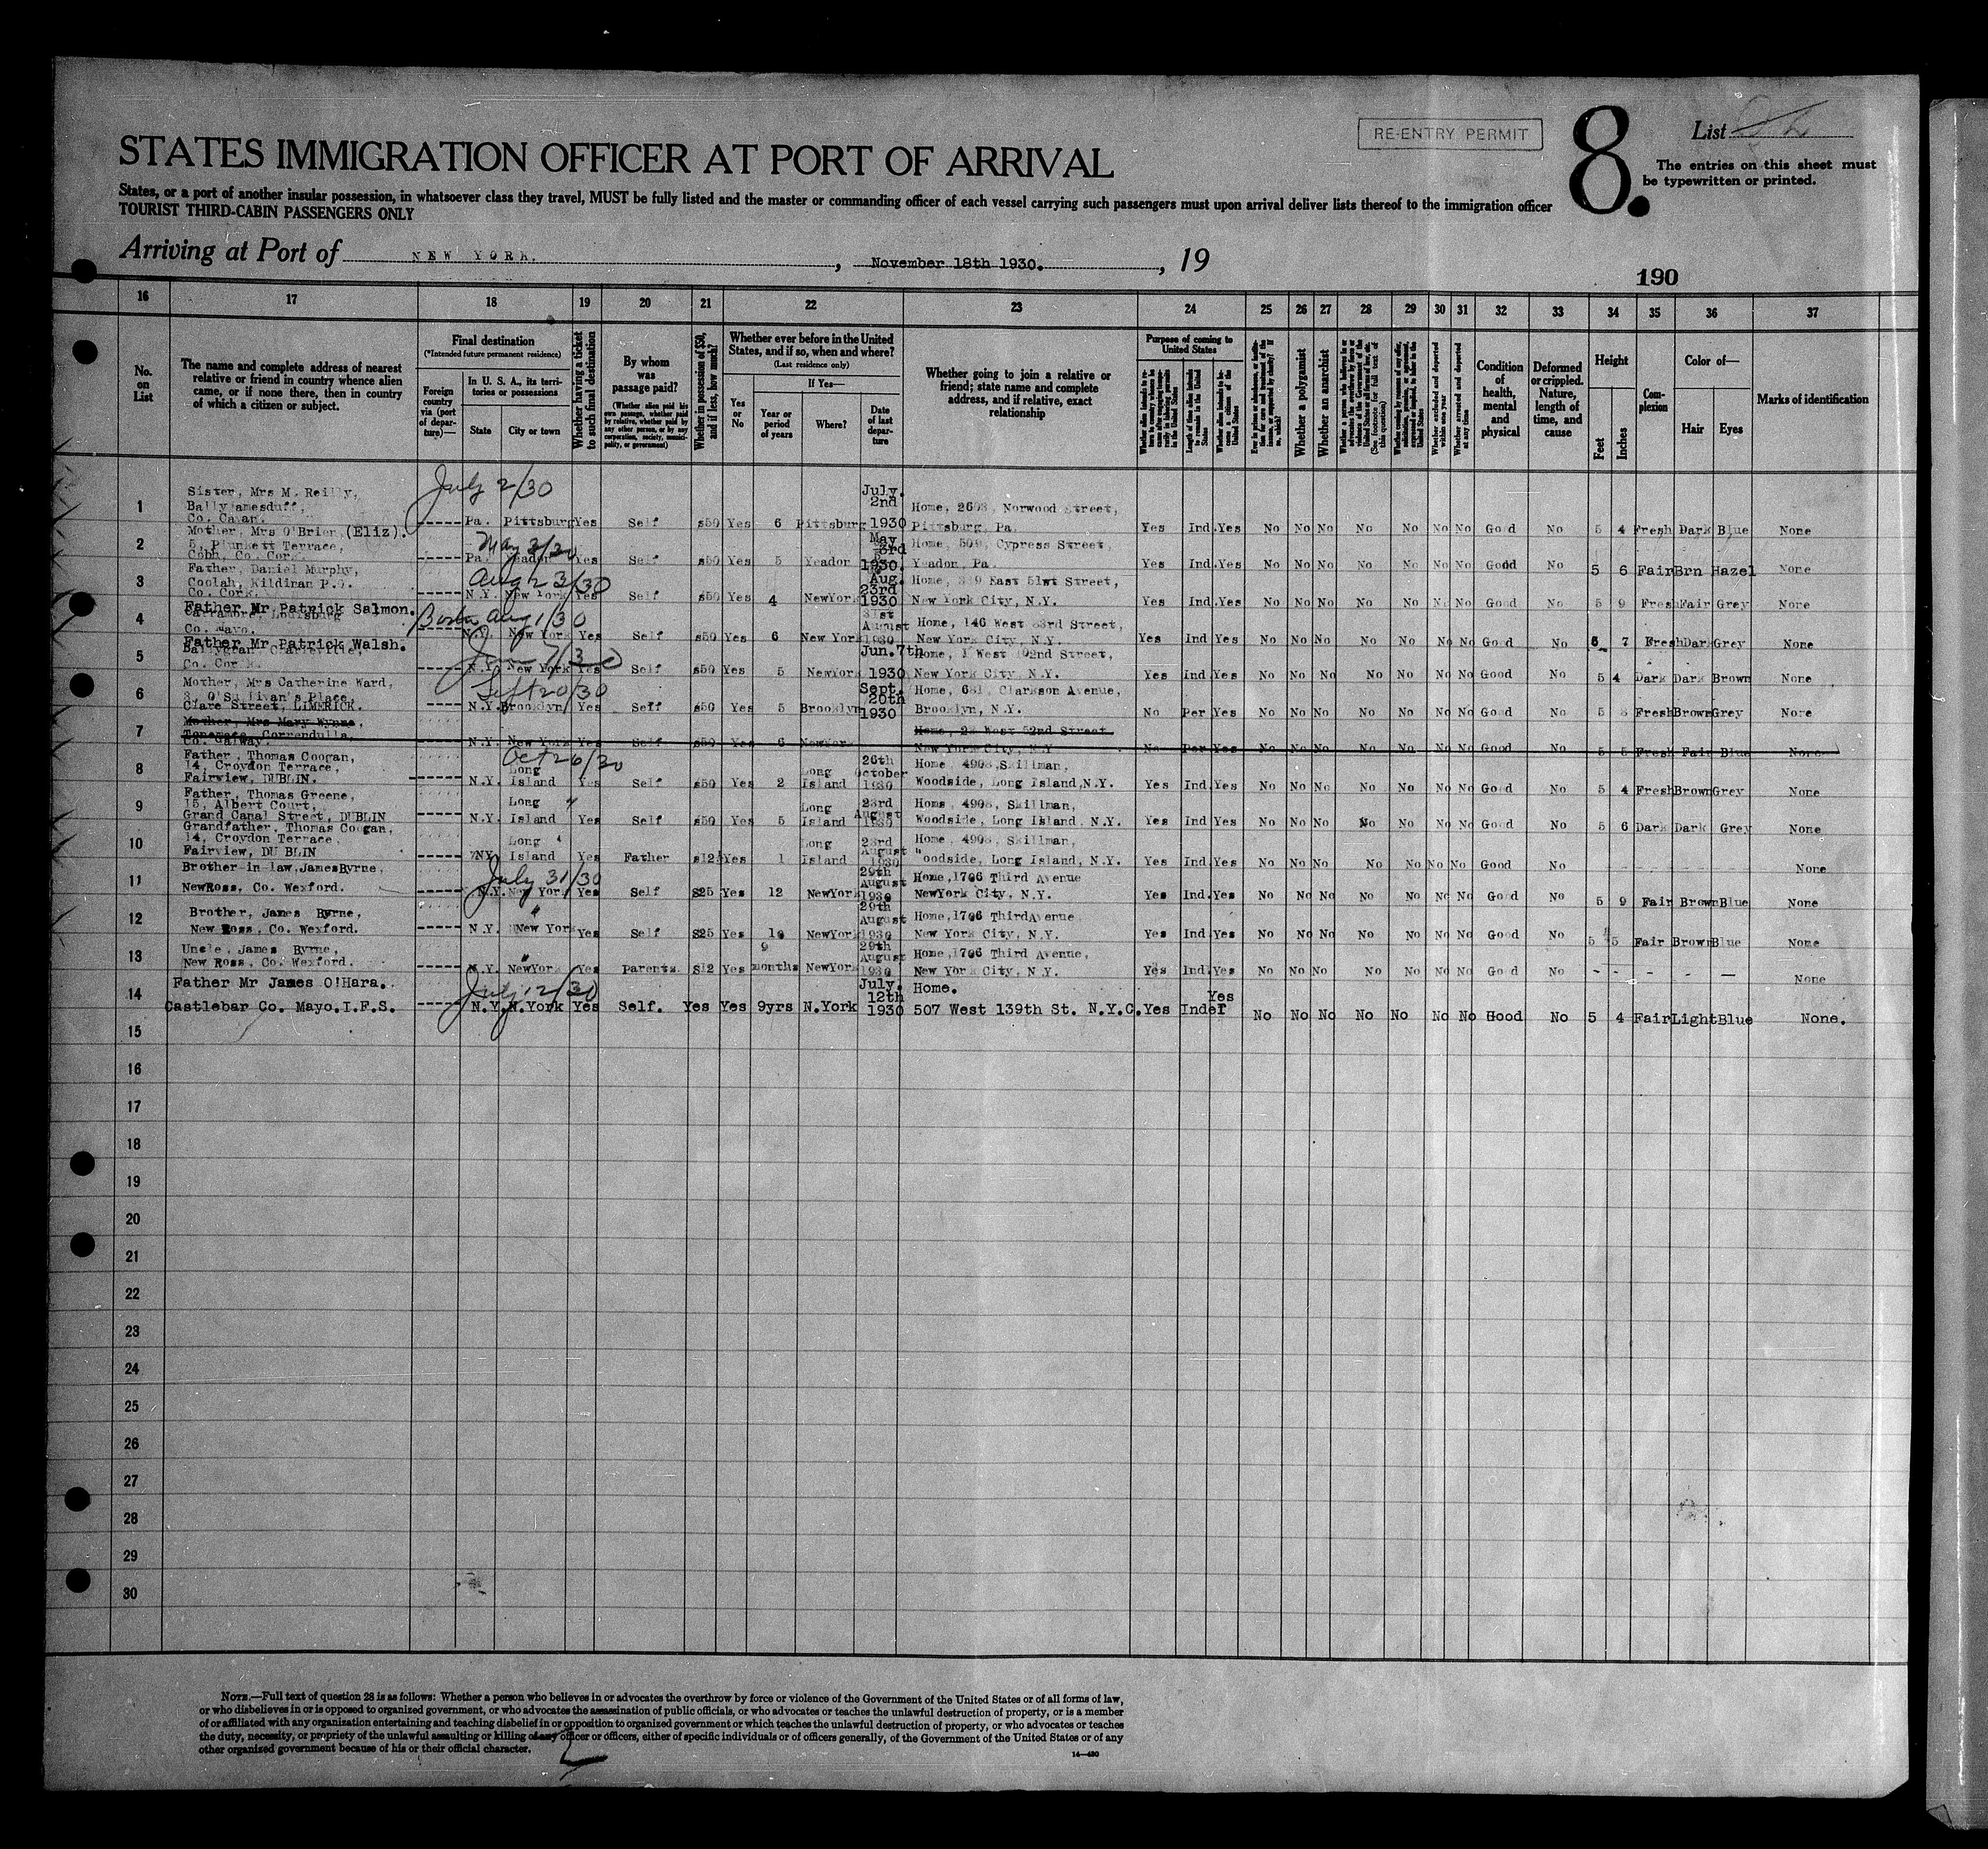 RE-ENTRY PERMIT
8.
List
STATES IMMIGRATION OFFICER AT PORT OF ARRIVAL
The entries on this sheet must
be typewritten or printed.
States, or a port of another insular possession, in whatsoever class they travel, MUST be fully listed and the master or commanding officer of each vessel carrying such passengers must upon arrival deliver lists thereof to the immigration officer
TOURIST THIRD-CABIN PASSENGERS ONLY
Arriving at Port of NEW YORK. , November 18th 1930. , 19
190
16 17 18 19 20 21 22 23 24 25 26 27 28 29 30 31 32 33 34 35 36 37
No. on List
The name and complete address of nearest
relative or friend in country whence alien
came, or if none there, then in country
of which a citizen or subject.
Final destination
(*Intended future permanent residence)
Foreign country via (port of departure)—
In U. S. A., its territories or possessions
State
City or town
Whether having a ticket to such final destination
By whom was passage paid?
(Whether alien paid his own passage, whether paid by relative, whether paid by any other person, or by any corporation, society, municipality, or government)
Whether in possession of $50, and if less, how much?
Whether ever before in the United
States, and if so, when and where?
(Last residence only)
Yes or No
If Yes—
Year or period of years
Where?
Date of last departure
Whether going to join a relative or
friend; state name and complete
address, and if relative, exact
relationship
Purpose of coming to United States
Length of time alien intends to remain in the United States
Whether alien intends to become a citizen of the United States
Whether a polygamist
Whether an anarchist
Whether excluded and deported within one year
Whether arrested and deported at any time
Condition of health, mental and physical
Deformed or crippled. Nature, length of time, and cause
Height
Feet
Inches
Complexion
Color of—
Hair
Eyes
Marks of identification
July 2/30
1 Sister, Mrs M. Reilly,
Ballyjamesduff,
Co. Cavan.
Pa. Pittsburg Yes Self $50 Yes 6 Pittsburg July. 2nd 1930 Home, 2603, Norwood Street,
Pittsburg, Pa. Yes Ind. Yes No No No No No No No Good No 5 4 Fresh Dark Blue None
2 Mother, Mrs O'Brien (Eliz).
5, Plunkett Terrace,
Cobh, Co. Cork.
May 3/30
Pa. Yeadon Yes Self $50 Yes 5 Yeadon May 3rd 1930. Home, 509, Cypress Street,
Yeadon, Pa. Yes Ind Yes No No No No No No No Good No 5 6 Fair Brn Hazel None
3 Father, Daniel Murphy,
Coolah, Kildinan P.O.
Co. Cork.
Aug 23/30
N.Y. New York Yes Self $50 Yes 4 NewYork Aug. 23rd 1930 Home, East 51st Street,
New York City, N.Y. Yes Ind. Yes No No No No No No No Good No 5 9 Fresh Fair Grey None
4 Father Mr Patrick Salmon.
Carramore, Louisburg
Co. Mayo.
Boston Aug 1/30
N.Y. New York Yes Self $50 Yes 6 New York 31st August 1930 Home, 146 West 83rd Street,
New York City, N.Y. Yes Ind Yes No No No No No No No Good No 5 7 Fresh Dark Grey None
5 Father Mr Patrick Walsh.
Co. Cork.
June 7/30
N.Y. New York Yes Self $50 Yes 5 NewYork Jun. 7th 1930 Home, 1 West 102nd Street,
New York City, N.Y. Yes Ind Yes No No No No No No No Good No 5 4 Dark Dark Brown None
6 Mother, Mrs Catherine Ward,
3, O'Sullivan's Place,
Clare Street, LIMERICK.
Sept 20/30
N.Y. Brooklyn Yes Self $50 Yes 5 Brooklyn Sept. 20th 1930 Home, 681, Clarkson Avenue,
Brooklyn, N.Y. No Per Yes No No No No No No No Good No 5 Fresh Brown Grey None
7 Mother, Mrs Mary Wynne,
Correndulla,
Co. Galway.
N.Y. New York Yes Self $50 Yes 6 NewYork Home, West 52nd Street
New York City, N.Y No Per Yes No No No No No No No Good No 5 5 Fresh Fair Blue None
8 Father, Thomas Coogan,
14, Croydon Terrace,
Fairview, DUBLIN.
Oct 26/30
N.Y. Long Island Yes Self $50 Yes 2 Long Island 26th October 1930 Home, 4908, Skillman,
Woodside, Long Island, N.Y. Yes Ind. Yes No No No No No No No Good No 5 4 Fresh Brown Grey None
9 Father, Thomas Greene,
15, Albert Court,
Grand Canal Street, DUBLIN
N.Y. Long Island " Yes Self $50 Yes 5 Long Island 23rd August 1930 Home, 4908, Skillman,
Woodside, Long Island, N.Y. Yes Ind Yes No No No No No No No Good No 5 6 Dark Dark Grey None
10 Grandfather, Thomas Coogan,
14, Croydon Terrace,
Fairview, DUBLIN
NY. Long Island " Yes Father $12 Yes 1 Long Island 23rd August 1930 Home, 4908, Skillman,
Woodside, Long Island, N.Y. Yes Ind. Yes No No No No No No No Good No None
11 Brother-in-law, James Byrne,
NewRoss, Co. Wexford.
July 31/30
N.Y. New York Yes Self $25 Yes 12 NewYork 29th August 1930 Home, 1706 Third Avenue
NewYork City, N.Y. Yes Ind. Yes No No No No No No No Good No 5 9 Fair Brown Blue None
12 Brother, James Byrne,
New Ross, Co. Wexford.
N.Y. New York " Yes Self $25 Yes 10 NewYork 29th August 1930 Home, 1706 ThirdAvenue
New York City, N.Y. Yes Ind. Yes No No No No No No No Good No 5 5 Fair Brown Blue None
13 Uncle, James Byrne,
New Ross, Co. Wexford.
N.Y. NewYork " Yes Parents. $12 Yes 9 months NewYork 29th August 1930 Home, 1706 Third Avenue,
New York City, N.Y. Yes Ind. Yes No No No No No No No Good No - - - - - None
14 Father Mr James O'Hara.
Castlebar Co. Mayo. I.F.S.
July 12/30
N.Y. N.York Yes Self. Yes Yes 9yrs N.York July. 12th 1930 Home.
507 West 139th St. N.Y.C. Yes Indef Yes No No No No No No No Good No 5 4 Fair Light Blue None.
15
16
17
18
19
20
21
22
23
24
25
26
27
28
29
30
NOTE.—Full text of question 28 is as follows: Whether a person who believes in or advocates the overthrow by force or violence of the Government of the United States or of all forms of law,
or who disbelieves in or is opposed to organized government, or who advocates the assassination of public officials, or who advocates or teaches the unlawful destruction of property, or is a member
of or affiliated with any organization entertaining and teaching disbelief in or opposition to organized government or which teaches the unlawful destruction of property, or who advocates or teaches
the duty, necessity, or propriety of the unlawful assaulting or killing of any officer or officers, either of specific individuals or of officers generally, of the Government of the United States or of any
other organized government because of his or their official character.
14—430